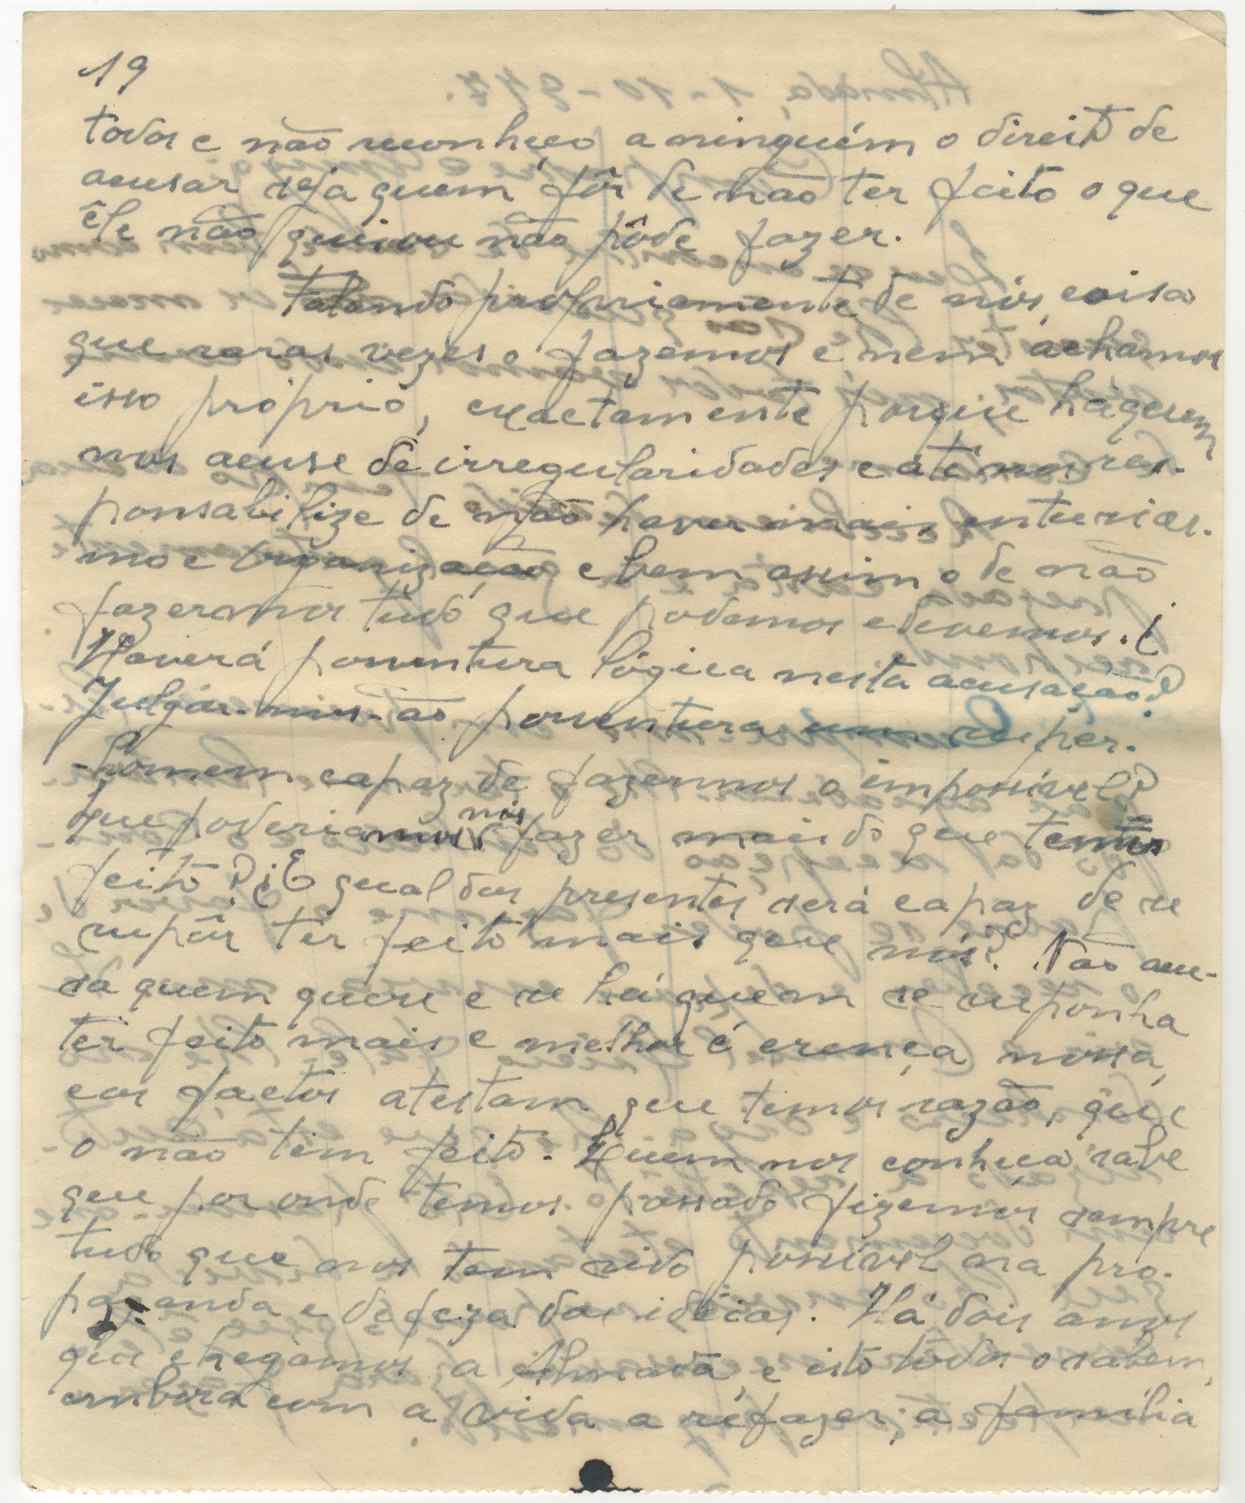 19
todos e não reconheço a ninguém o direito de
acusar seja quem fôr de não ter feito o que
êle não quis ou não pôde fazer.
Falando propriamente de nós, coisa
que raras vezes o fazemos e nem achamos
isso próprio, exactamente porque há quem
nos acuse de irregularidades e até nos res-
ponsabilize de não haver mais enturias-
mo e organização e bem assim o de não
fazermos tudo que podemos e devemos. ¿
Haverá porventura lógica nesta acusação?
Julgar-nos-ão porventura um super-
-homem capaz de fazermos o impossível?
Que poderiamos nós fazer mais do que temos
feito? ¿E qual dos presentes será capaz de se
supôr ter feito mais que nós? Não acu-
sa quem quere e se há quem se suponha
ter feito mais e melhor é crença nossa,
e os factos atestam que temos razão, que
o não tem feito. Quem nos conheça sabe
que por onde temos passado fizemos sempre
tudo que nos tem sido possível na pro-
paganda e defeza das idéias. Há dois anos
que chegámos a Almada e isto todos o sabem,
embora com a vida a refazer; a família